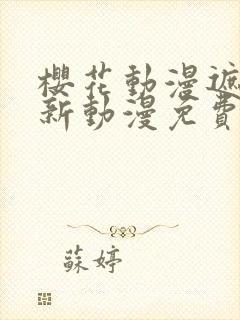 櫻花動漫遮
新動漫免費
蘇婷